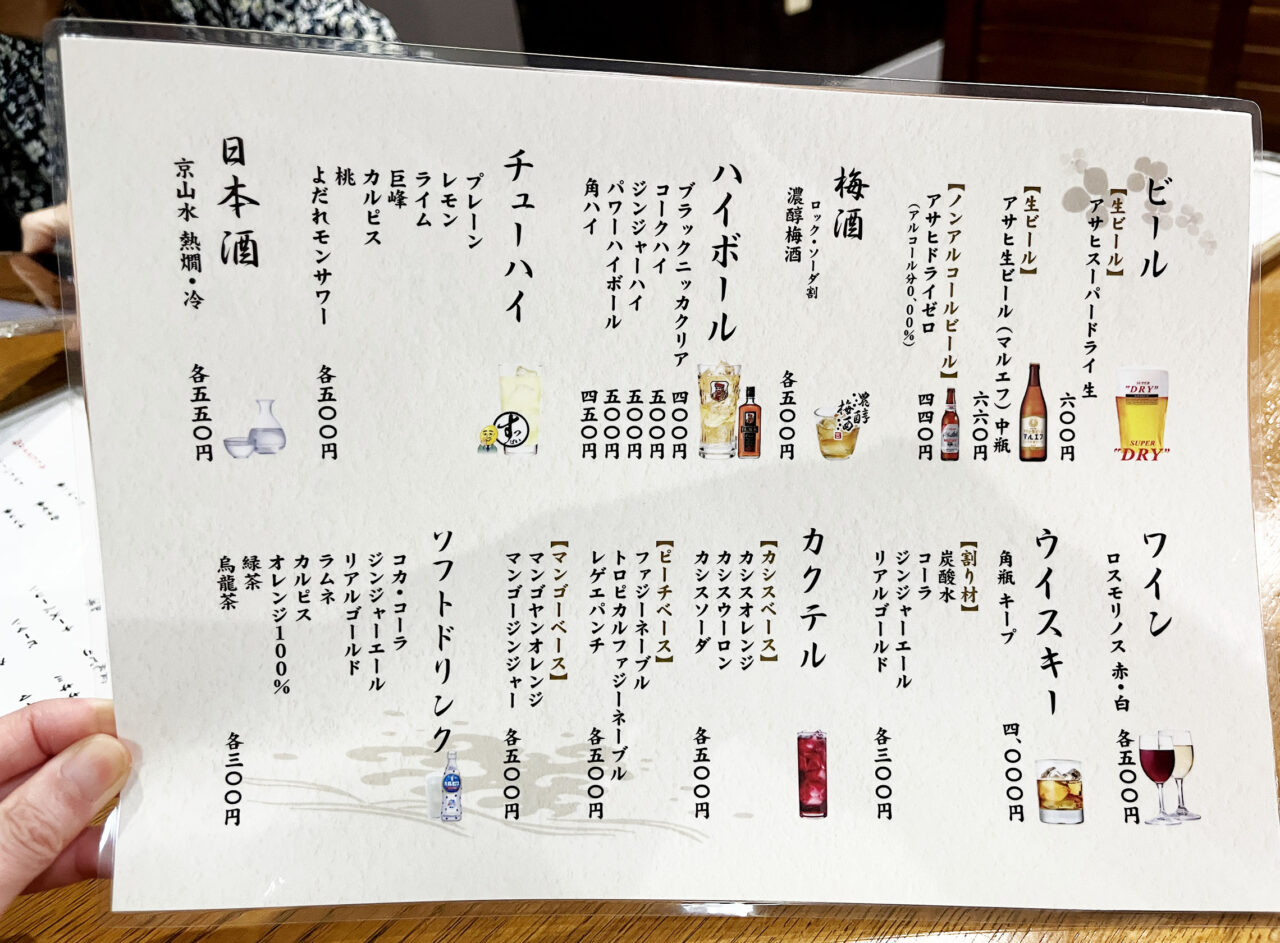 ビール
【生ビール】
アサヒスーパードライ 生
六〇〇円
【生ビール】
アサヒ生ビール(マルエフ)中瓶
六六〇円
【ノンアルコールビール】
アサヒドライゼロ
(アルコール分0.00%)
四四〇円
SUPER
"DRY"
SUPER
"DRY"
マルエフ
梅酒
ロック・ソーダ割
濃醇梅酒
各五〇〇円
濃醇
梅酒
ハイボール
ブラックニッカクリア
四〇〇円
コークハイ
五〇〇円
ジンジャーハイ
五〇〇円
パワーハイボール
五〇〇円
角ハイ
四五〇円
チューハイ
プレーン
レモン
ライム
巨峰
カルピス
桃
よだれモンサワー
各五〇〇円
すっぱい
日本酒
京山水 熱燗・冷
各五五〇円
ワイン
ロスモリノス 赤・白
各五〇〇円
ウイスキー
角瓶 キープ
四、〇〇〇円
【割り材】
炭酸水
コーラ
ジンジャーエール
リアルゴールド
各三〇〇円
カクテル
【カシスベース】
カシスオレンジ
カシスウーロン
カシスソーダ
各五〇〇円
【ピーチベース】
ファジーネーブル
トロピカルファジーネーブル
レゲエパンチ
各五〇〇円
【マンゴーベース】
マンゴヤンオレンジ
マンゴージンジャー
各五〇〇円
ソフトドリンク
コカ・コーラ
ジンジャーエール
リアルゴールド
ラムネ
カルピス
オレンジ100%
緑茶
烏龍茶
各三〇〇円